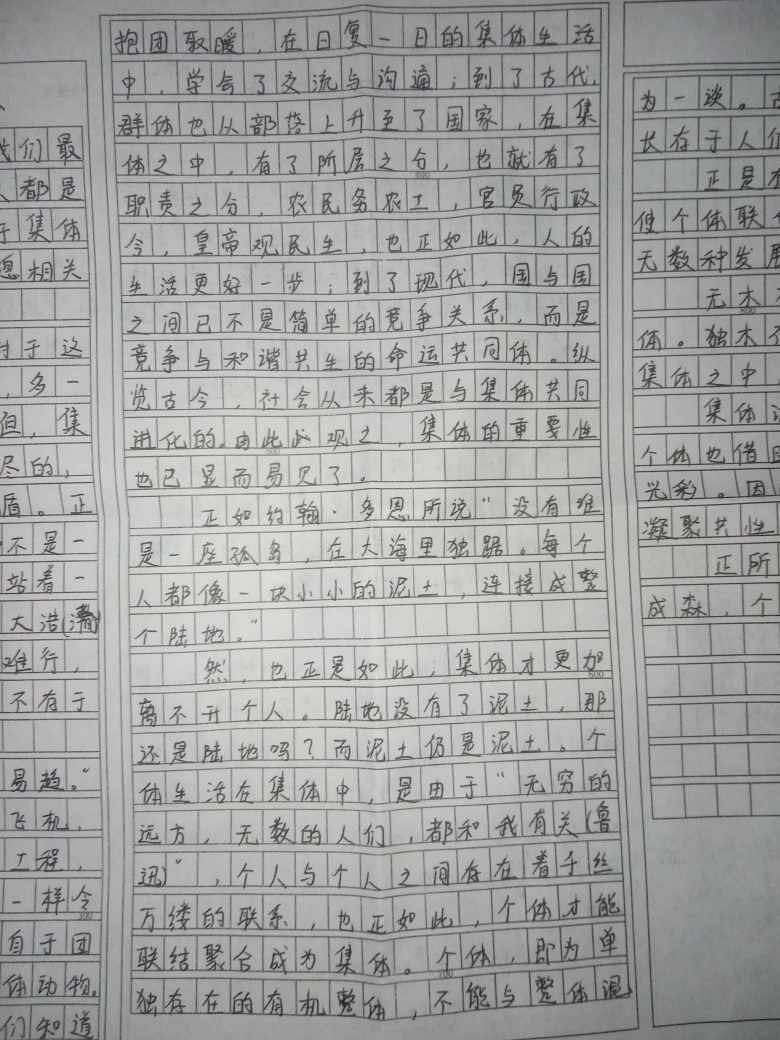 们最
都是
于集体
愿相关
对于这
，多一
但，集
尽的，
盾。正
不是一
站着一
大浩(瀚)
难行，
不有于
易趋。”
飞机，
工程，
一样令
300
自于团
体动物。
们知道
抱团取暖，在日复一日的集体生活
中 学会了交流与沟通；到了古代，
群体也从部落上升至了国家，在集
体之中，有了所居之分，也就有了
400
职责之分，农民务农工，官员行政
令，皇帝观民生，也正如此，人的
生活更好一步；到了现代，国与国
之间已不是简单的竞争关系，而是
竞争与和谐共生的命运共同体。纵
览古今，社会从来都是与集体共同
进化的。由此观之，集体的重要性
500
也已显而易见了。
正如约翰·多恩所说“没有谁
是一座孤岛，在大海里独踞。每个
人都像一块小小的泥土，连接成整
个陆地。”
然，也正是如此，集体才更加
600
离不开个人。陆地没有了泥土，那
还是陆地吗？而泥土仍是泥土。个
体生活在集体中，是由于“无穷的
远方，无数的人们，都和我有关(鲁
迅)”，个人与个人之间存在着千丝
万缕的联系，也正如此，个体才能
联结聚合成为集体。个体，即为单
700
独存在的有机整体，不能与整体混
为一谈。
长存于人们
正是
使个体联
无数种发展
无木
800
体。独木不
集体之中
集体
个体也借
光彩。因
凝聚共性
正所
成森，个